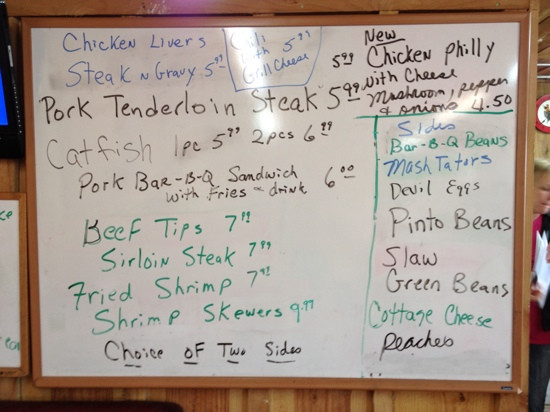 Chicken Livers
Steak n Gravy 5.99
Chili 5.99
with
Grill Cheese
Pork Tenderloin Steak 5.99
Catfish 1pc 5.99 2pcs 6.99
Pork Bar-B-Q Sandwich 6.00
with fries - drink
Beef Tips 7.99
Sirloin Steak 7.99
Fried Shrimp 7.99
Shrimp Skewers 9.99
Choice of Two Sides
New
5.99 Chicken Philly
with Cheese
Mushroom, pepper
& onions 4.50
Sides
Bar-B-Q Beans
Mash Tators
Devil Eggs
Pinto Beans
Slaw
Green Beans
Cottage Cheese
Peaches